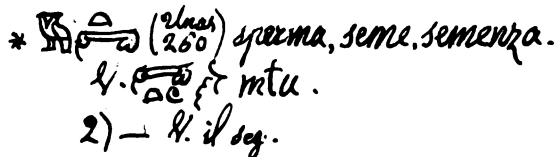 * (Unas 260) sperma, seme, semenza.
V. } mtu.
2) — V. il seg.